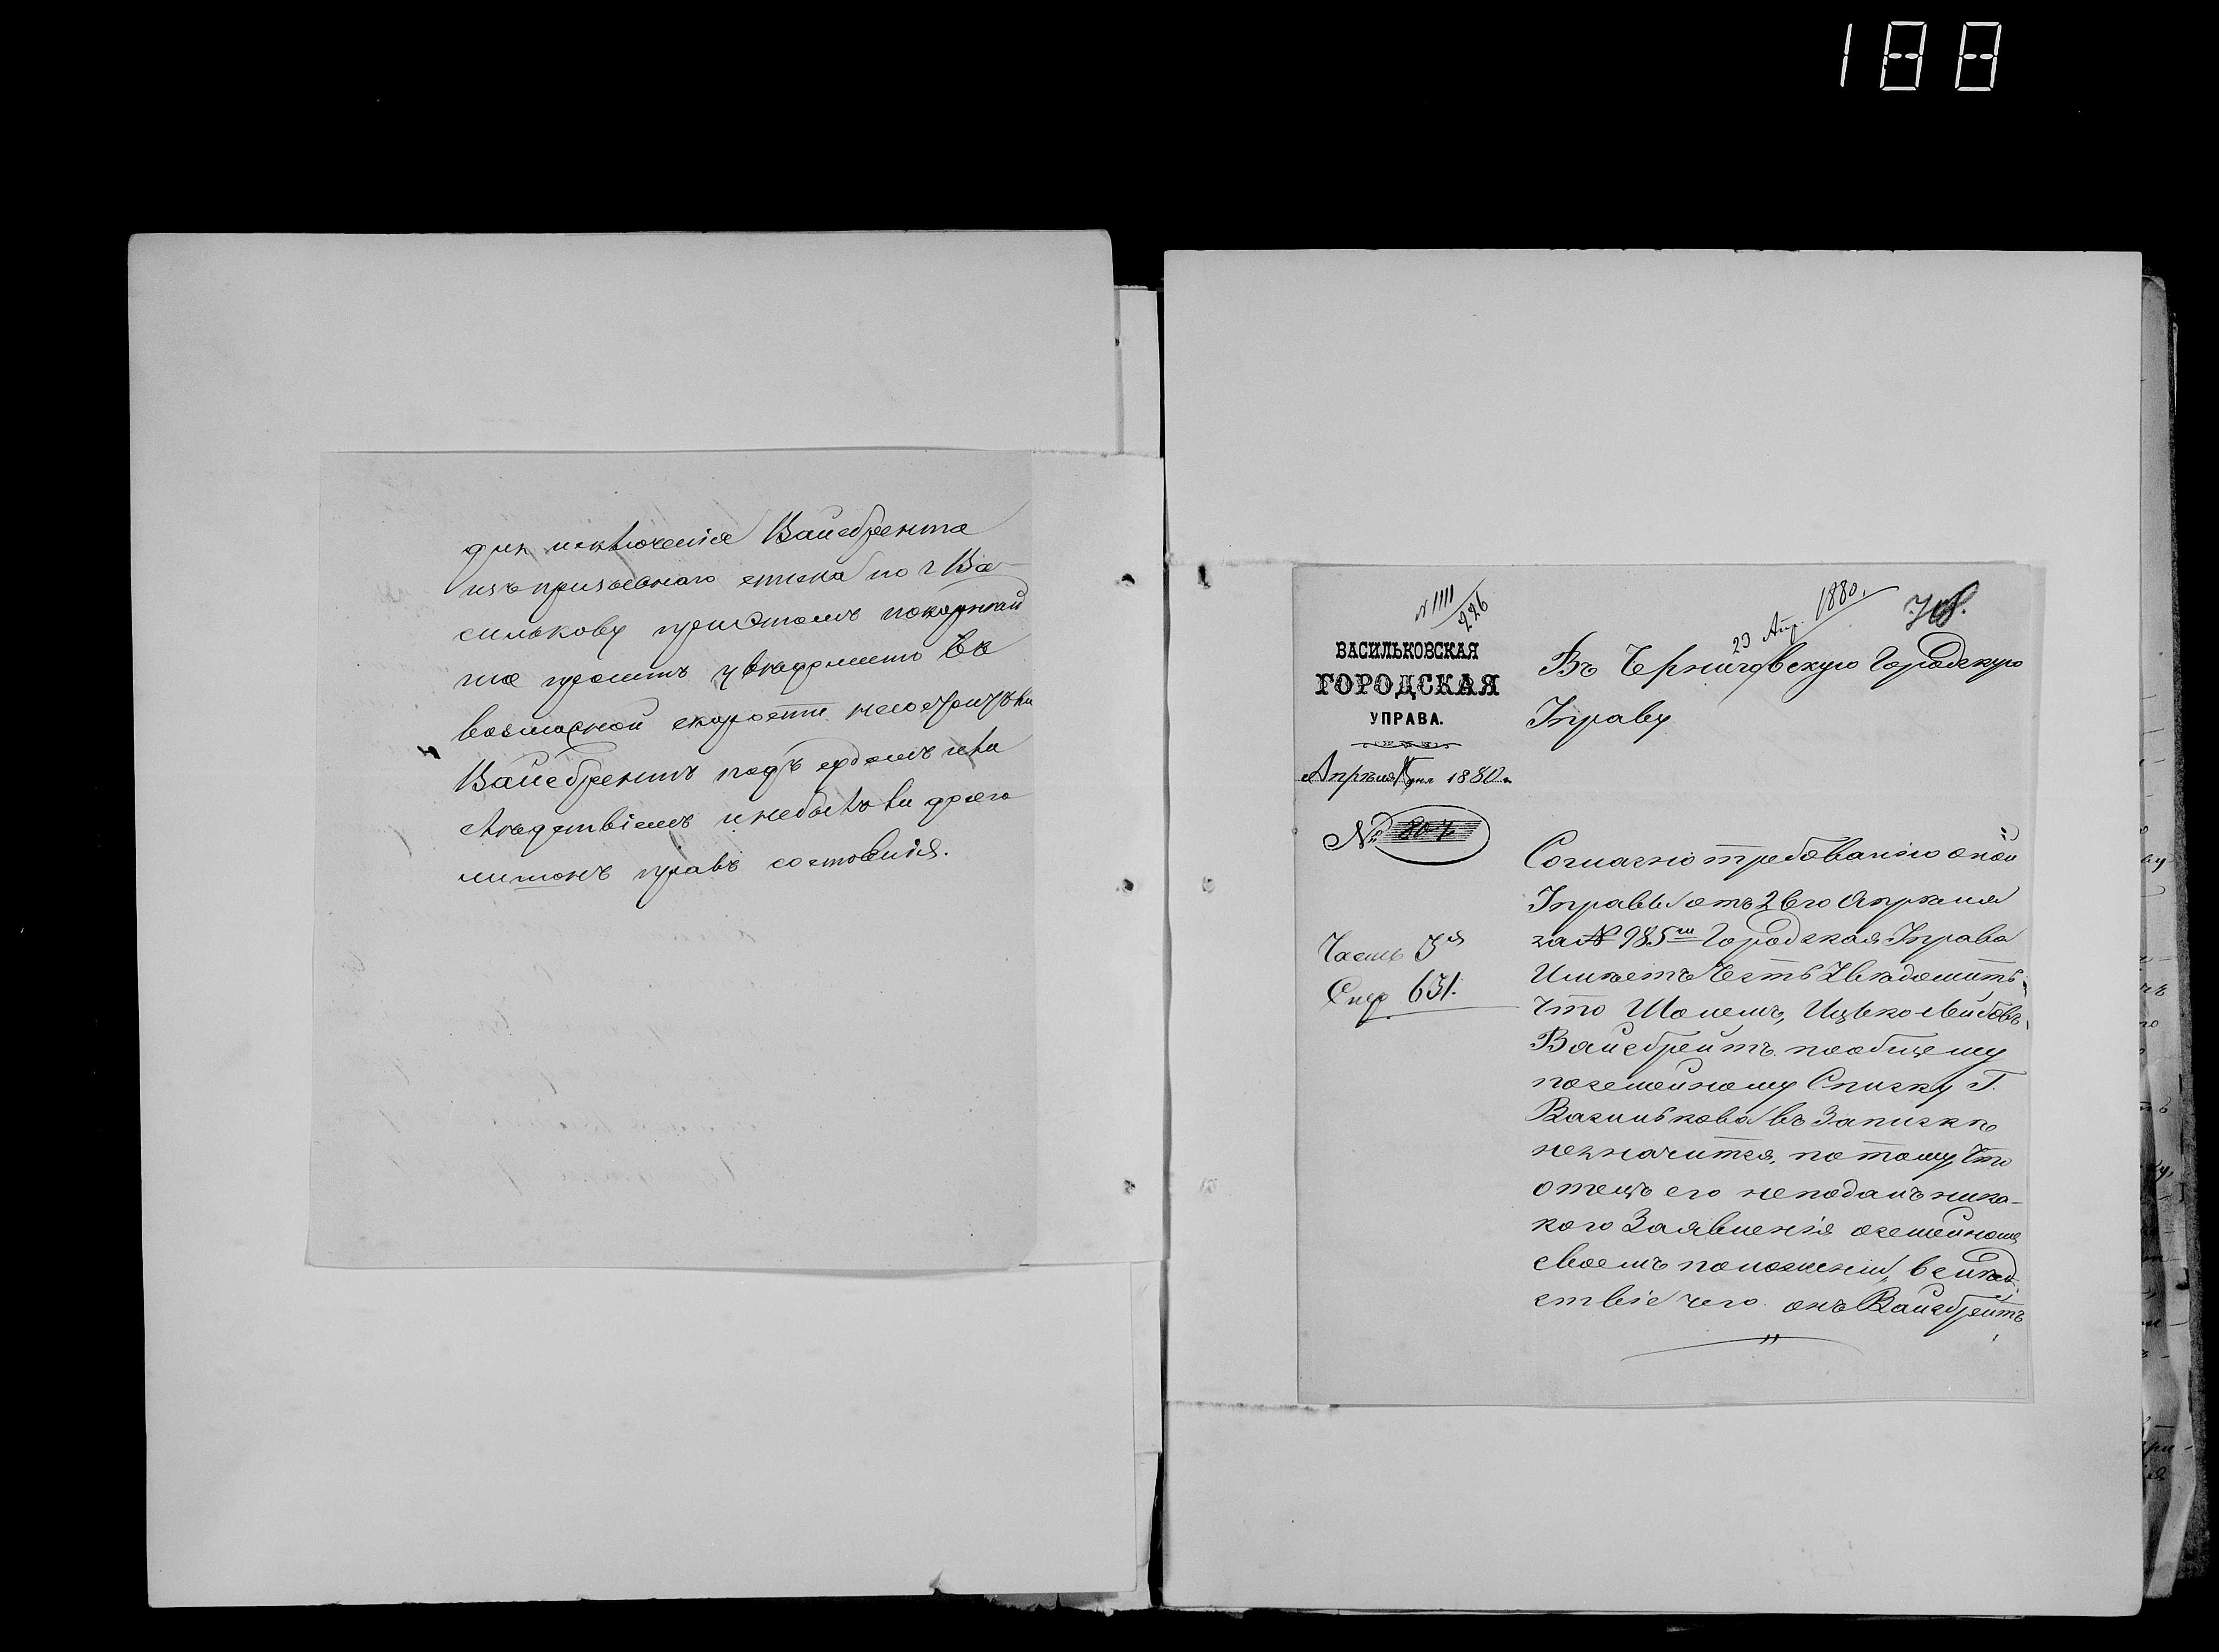 188
для исключенія Вайсбрейта
изъ призывнаго списка по г Ва-
силькову при этомъ покорнѣй
ше проситъ увѣдомить въ
возможной скорости несостоитъ ли
Вайсбрейтъ подъ судомъ или
слѣдствіемъ и небылъ ли
лишонъ правъ состоянія.
N 1111
226
23 Апр. 1880.
ВАСИЛЬКОВСКАЯ
ГОРОДСКАЯ
УПРАВА.
Апрѣля дня 1880 г.
№ 807
Часть 3я
631.
Въ Черниговскую Городскую
Управу
Согласно требованію оной
Управы отъ 26го Апрѣля
за № 985м Городская Управа
Имѣетъ Честь Увѣдомить,
что Шолемъ, Ицько Лейбовъ,
Вайсбрейтъ пообщему
посемейному Списку Г.
Василькова въ Запискѣ
незначится, потому что
отецъ его неподалъ ника-
кого Заявленія осемейномъ
своемъ положеніи, вслѣд-
ствіе чего онъ Вайсбрейтъ